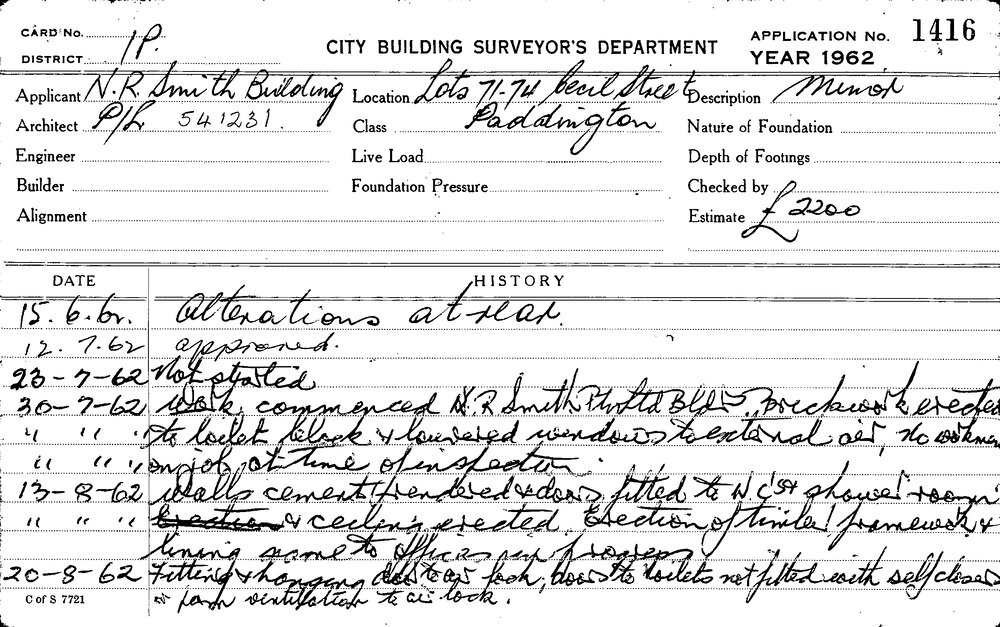 CARD No.
1P.
DISTRICT
CITY BUILDING SURVEYOR'S DEPARTMENT
APPLICATION No. 1416
YEAR 1962
Applicant N. R. Smith Building
Location Lots 71-74 Cecil Street
Description Minor
Architect P/L 541231.
Class Paddington
Nature of Foundation
Engineer
Live Load
Depth of Footings
Builder
Foundation Pressure
Checked by
Alignment
Estimate £2200
DATE HISTORY
15.6.62. Alterations at rear.
12.7.62 approved.
23-7-62 Not started
30-7-62 Work commenced N. R Smith P/L Bldrs. Brickwork erected
" " " to toilet block & louvered windows to external air, No workmen
" " " on job at time of inspection.
13-8-62 Walls cement rendered & doors fitted to W.C's & shower room
" " " Erection & ceilings erected. Erection of timber framework &
lining same to offices in progress
20-8-62 Fitting & hanging door to air lock, doors to toilets not fitted with self closers
or perm ventilation to air lock.
C of S 7721